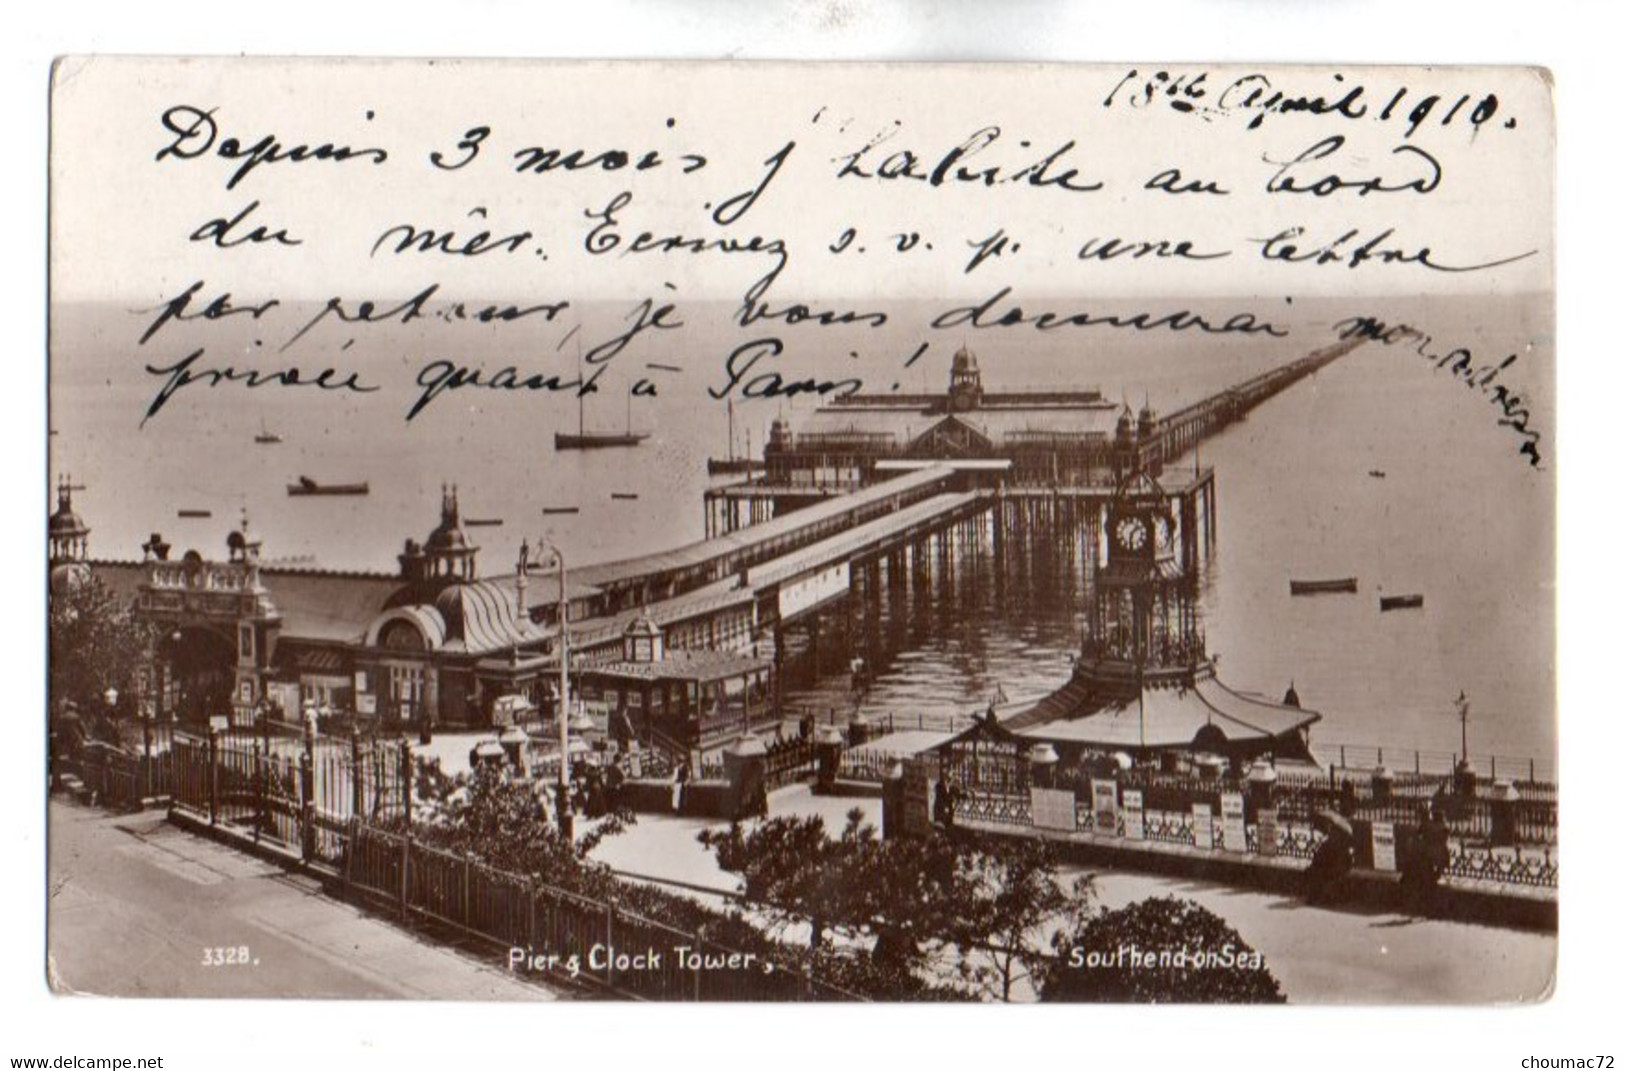 18th April 1910.
Depuis 3 mois j'habite au bord
du mêr. Ecrivez s. v. p. une lettre
par retour, je vous donnerai mon adresse
privée quant à Paris!
3328.
Pier & Clock Tower,
Southend-on-Sea.
www.delcampe.net
choumac72